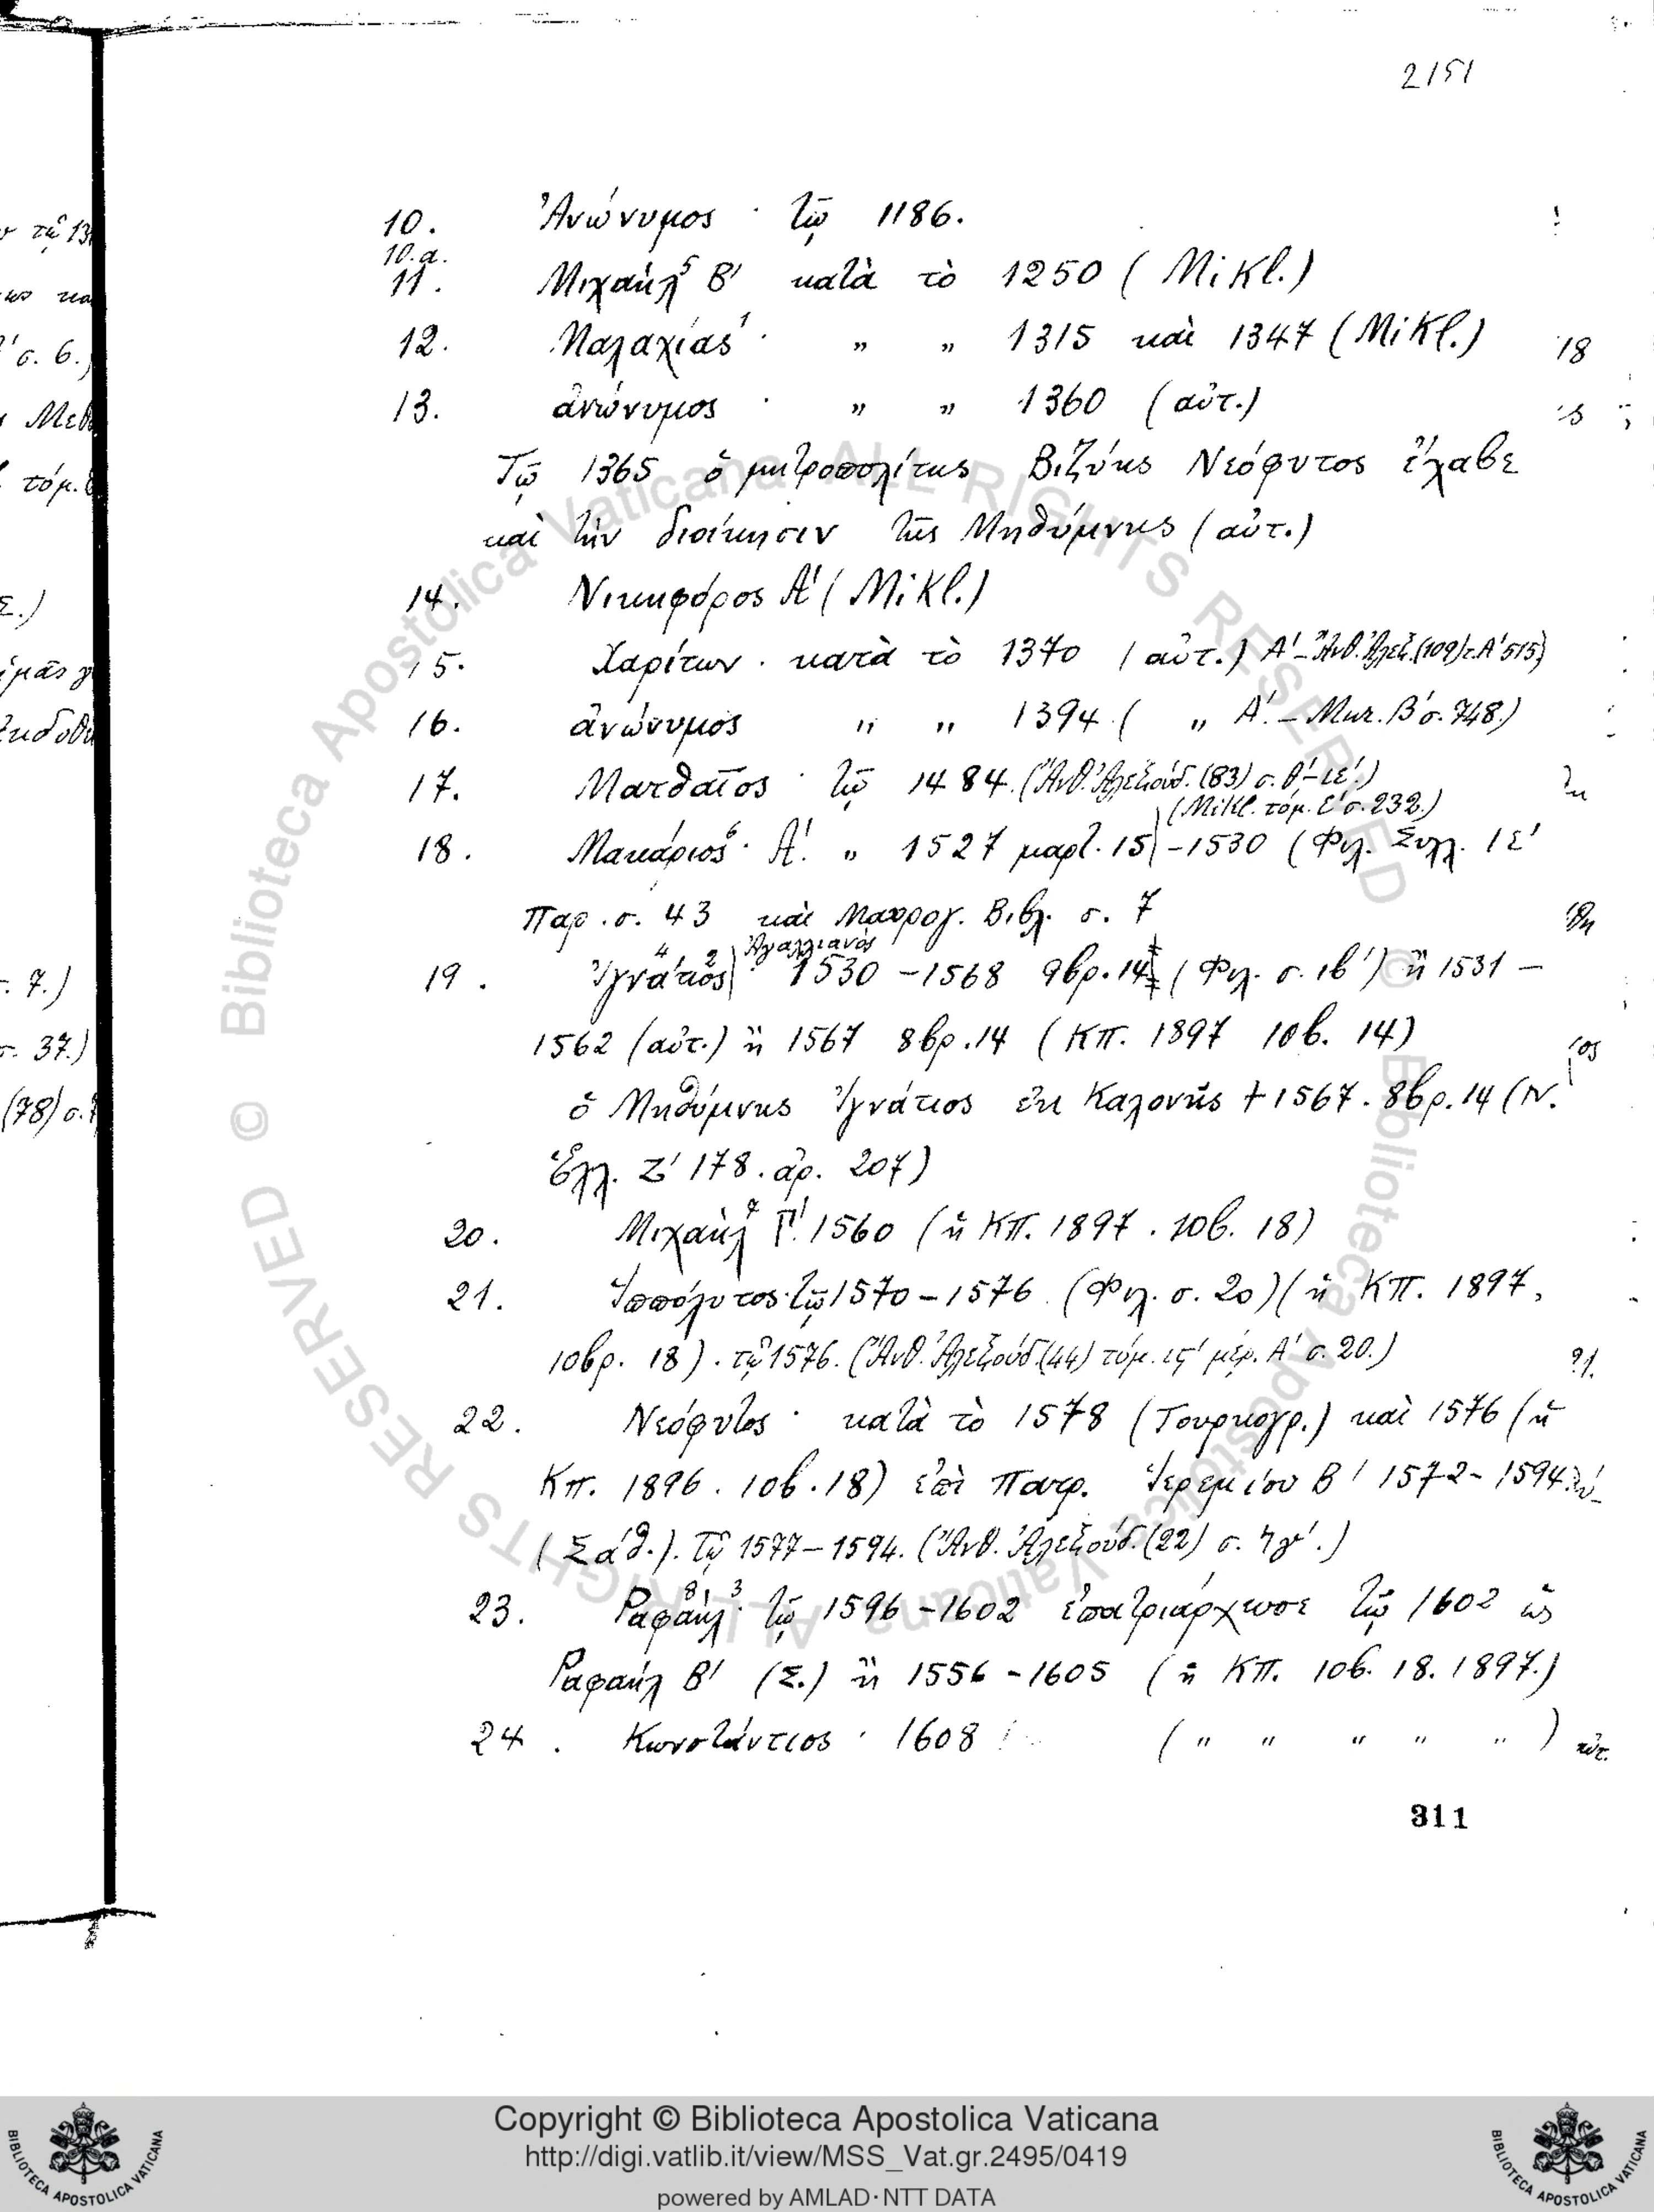 2151
10. Ἀνώνυμος · τῷ 1186.
10.α.
11. Μιχαὴλ⁵ Β' κατὰ τὸ 1250 (Mikl.)
12. Μαλαχίας¹ · „ „ 1315 καὶ 1347 (Mikl.)
13. ἀνώνυμος · „ „ 1360 (αὐτ.)
Τῷ 1365 ὁ μητροπολίτης Βιζύης Νεόφυτος ἔλαβε
καὶ τὴν διοίκησιν τῆς Μηθύμνης (αὐτ.)
14. Νικηφόρος Α' (Mikl.)
15. Χαρίτων · κατὰ τὸ 1370 (αὐτ.) Α' – Ἀνθ. Ἀλεξ. (109) τ. Α' 515)
16. ἀνώνυμος „ „ 1394 ( „ Α'. – Μικ. Β' σ. 748.)
17. Ματθαῖος · τῷ 1484. (Ἀνθ. Ἀλεξούδ. (83) σ. θ' – ιε'.)
(Mikl. τόμ. Ε' σ. 232.)
18. Μακάριος⁶ · Α'. „ 1527 μαρτ. 15 – 1530 (Φιλ. Συλλ. ΙΕ'
Παρ. σ. 43 καὶ Μαυρογ. Βιβλ. σ. 7
Ἀγαλλιανὸς
19. Ἰγνάτιος · 1530 – 1568 9βρ. 14 (Φιλ. σ. ιβ') ἢ 1531 –
1562 (αὐτ.) ἢ 1567 8βρ. 14 (ΚΠ. 1897 10β. 14)
ὁ Μηθύμνης Ἰγνάτιος ἐκ Καλονῆς † 1567. 8βρ. 14 (Ν.
Ἑλλ. Ζ' 178. ἀρ. 207)
20. Μιχαὴλ Γ'. 1560 (ἡ ΚΠ. 1897. 10β. 18)
21. Ἱππόλυτος · τῷ 1570 – 1576. (Φιλ. σ. 20) (ἡ ΚΠ. 1897,
10βρ. 18). τῷ 1576. (Ἀνθ. Ἀλεξούδ. (44) τόμ. ιϛ' μέρ. Α' σ. 20.)
22. Νεόφυτος · κατὰ τὸ 1578 (Τουρκογρ.) καὶ 1576 (ἡ
Κπ. 1896. 10β. 18) ἐπὶ Πατρ. Ἱερεμίου Β' 1572 – 1594.
(Σάθ.). Τῷ 1577 – 1594. (Ἀνθ. Ἀλεξούδ. (22) σ. ϟγ'.)
23. Ῥαφαὴλ⁸ ³ · τῷ 1596 – 1602 ἐπατριάρχευσε τῷ 1602 ὡς
Ῥαφαὴλ Β' (Σ.) ἢ 1556 – 1605 (ἡ ΚΠ. 10β. 18. 1897.)
24. Κωνστάντιος · 1608 ( „ „ „ „ „ ) αὐτ.
311
Copyright © Biblioteca Apostolica Vaticana
http://digi.vatlib.it/view/MSS_Vat.gr.2495/0419
powered by AMLAD·NTT DATA